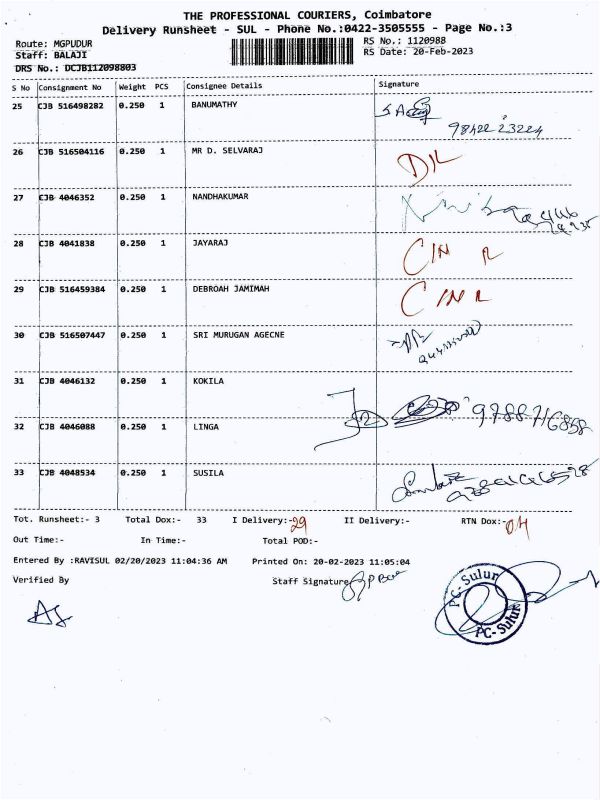 THE PROFESSIONAL COURIERS, Coimbatore
Delivery Runsheet - SUL - Phone No.:0422-3505555 - Page No.:3
Route: MGPUDUR RS No.: 1120988
Staff: BALAJI RS Date: 20-Feb-2023
DRS No.: DCJB112098803
S No Consignment No Weight PCS Consignee Details Signature
25 CJB 516498282 0.250 1 BANUMATHY
98422 23224
26 CJB 516504116 0.250 1 MR D. SELVARAJ D/L
27 CJB 4046352 0.250 1 NANDHAKUMAR
28 CJB 4041838 0.250 1 JAYARAJ C/N R
29 CJB 516459384 0.250 1 DEBROAH JAMIMAH C/N R
30 CJB 516507447 0.250 1 SRI MURUGAN AGECNE
31 CJB 4046132 0.250 1 KOKILA
9788716858
32 CJB 4046088 0.250 1 LINGA
33 CJB 4048534 0.250 1 SUSILA
Tot. Runsheet:- 3 Total Dox:- 33 I Delivery:-29 II Delivery:- RTN Dox:-04
Out Time:- In Time:- Total POD:-
Entered By :RAVISUL 02/20/2023 11:04:36 AM Printed On: 20-02-2023 11:05:04
Verified By Staff Signature
PC-Sulur
PC-Sulur